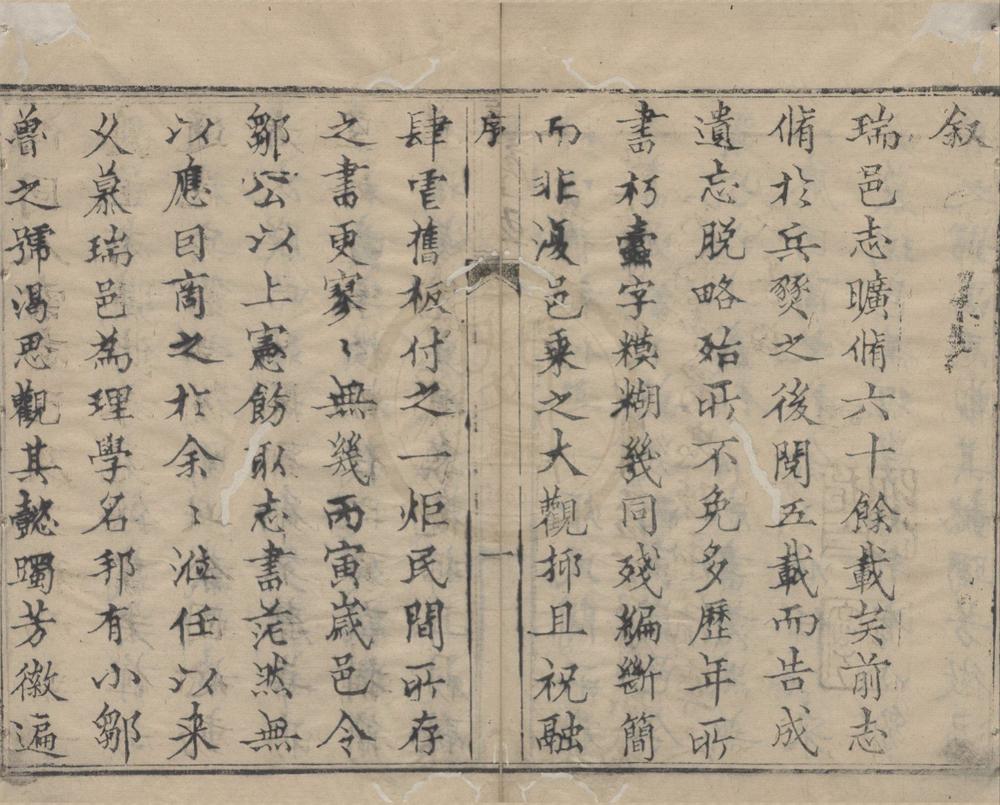 叙
瑞邑志曠脩六十餘載矣前志
脩扵兵燹之後閱五載而告成
遺忘脱略殆所不免多歷年所
書朽蠹字糢糊幾同殘編斷簡
而非復邑乗之大觀抑且祝融
序 一
肆虐舊板付之一炬民間所存
之書更寥〻無幾丙寅嵗邑令
鄒公以上憲飭取志書茫然無
以應回商之扵余〻涖任以来
乆慕瑞邑為理學名邦有小鄒
魯之號渴思觀其懿躅芳徽遍